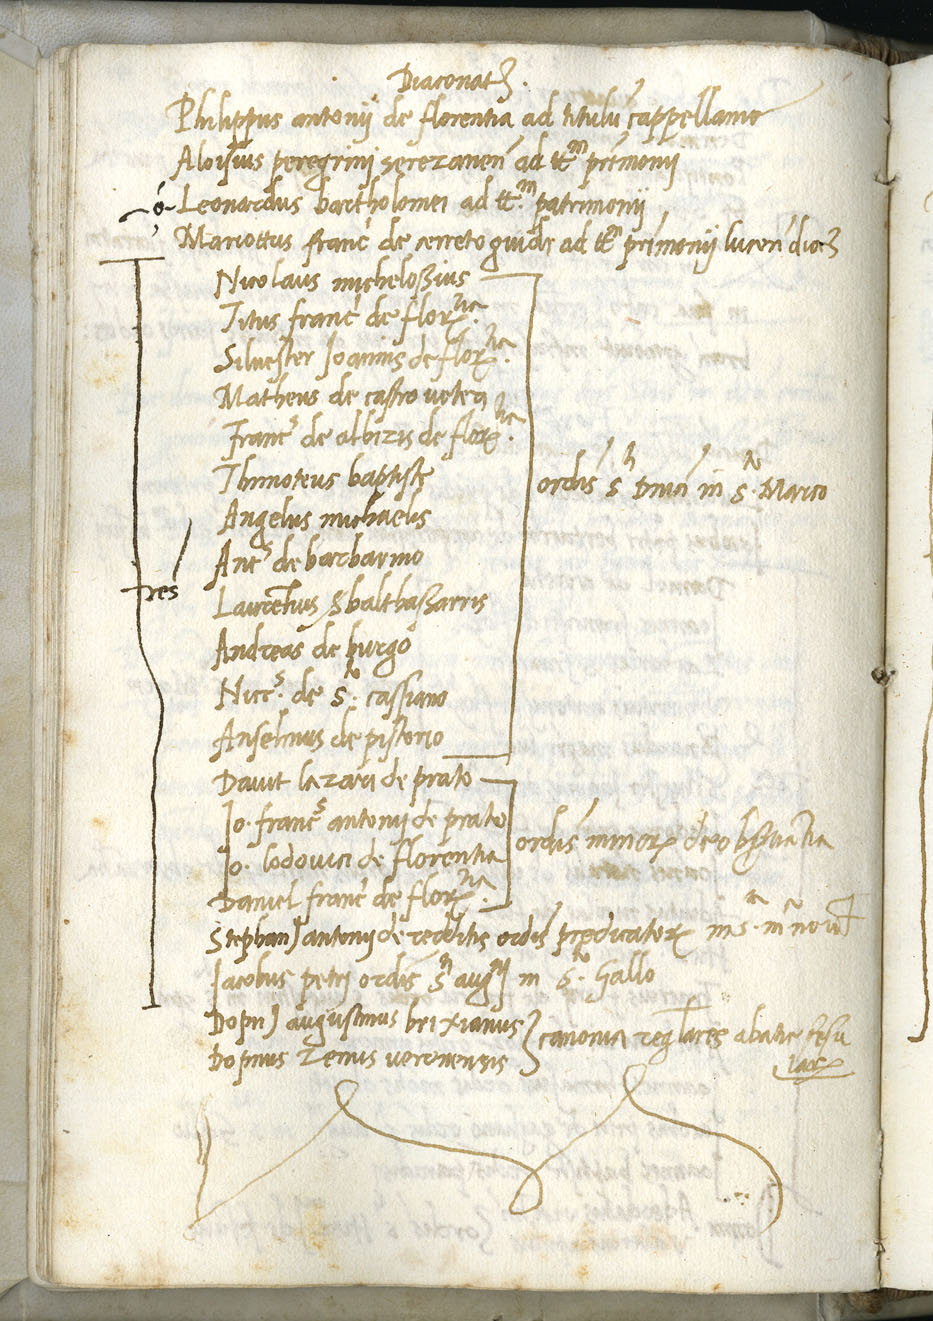 Diaconatꝰ.
Philippus antonij de florentia ad titulũ cappellanie
Aloisius peregrini serezaneñ ad ttm prĩmonij
Leonardus bartholomei ad tt.m patrimonij
Mariottus franc̃ de cerreto guidi ad ttm prĩmonij lucen̄ dioc̃
Nicolaus michelozius
Titus franc̃ de flor.tia
Silvester Joannis de flor.tia
Matheus de castro veteri
Franc.s de albizis de flor.tia
Thimoteus baptiste
Angelus michaelis
Ant.s de barbarino
Laurẽtius balthassarris
Andreas de burgo
Nicc.s de S.to cassiano
Anselmus de pistorio
ordĩs S.ti Dñici in S.to Marco
Davit lazari de prato
Jo. franc.s antonij de prato
Jo. lodovici de florentia
Daniel franc̃ de flor.tia
ordĩs minorꝝ de obseruãtia
res
Stephanꝰ antonij de redditis ordĩs predicatorꝝ in S. m.
Jacobus petri ordĩs S.ti aug.ni in S.to Gallo
Dopnꝰ augustinus brixianus
Dopnus Zenus veronensis
canonici reglares abatie fesu
lane